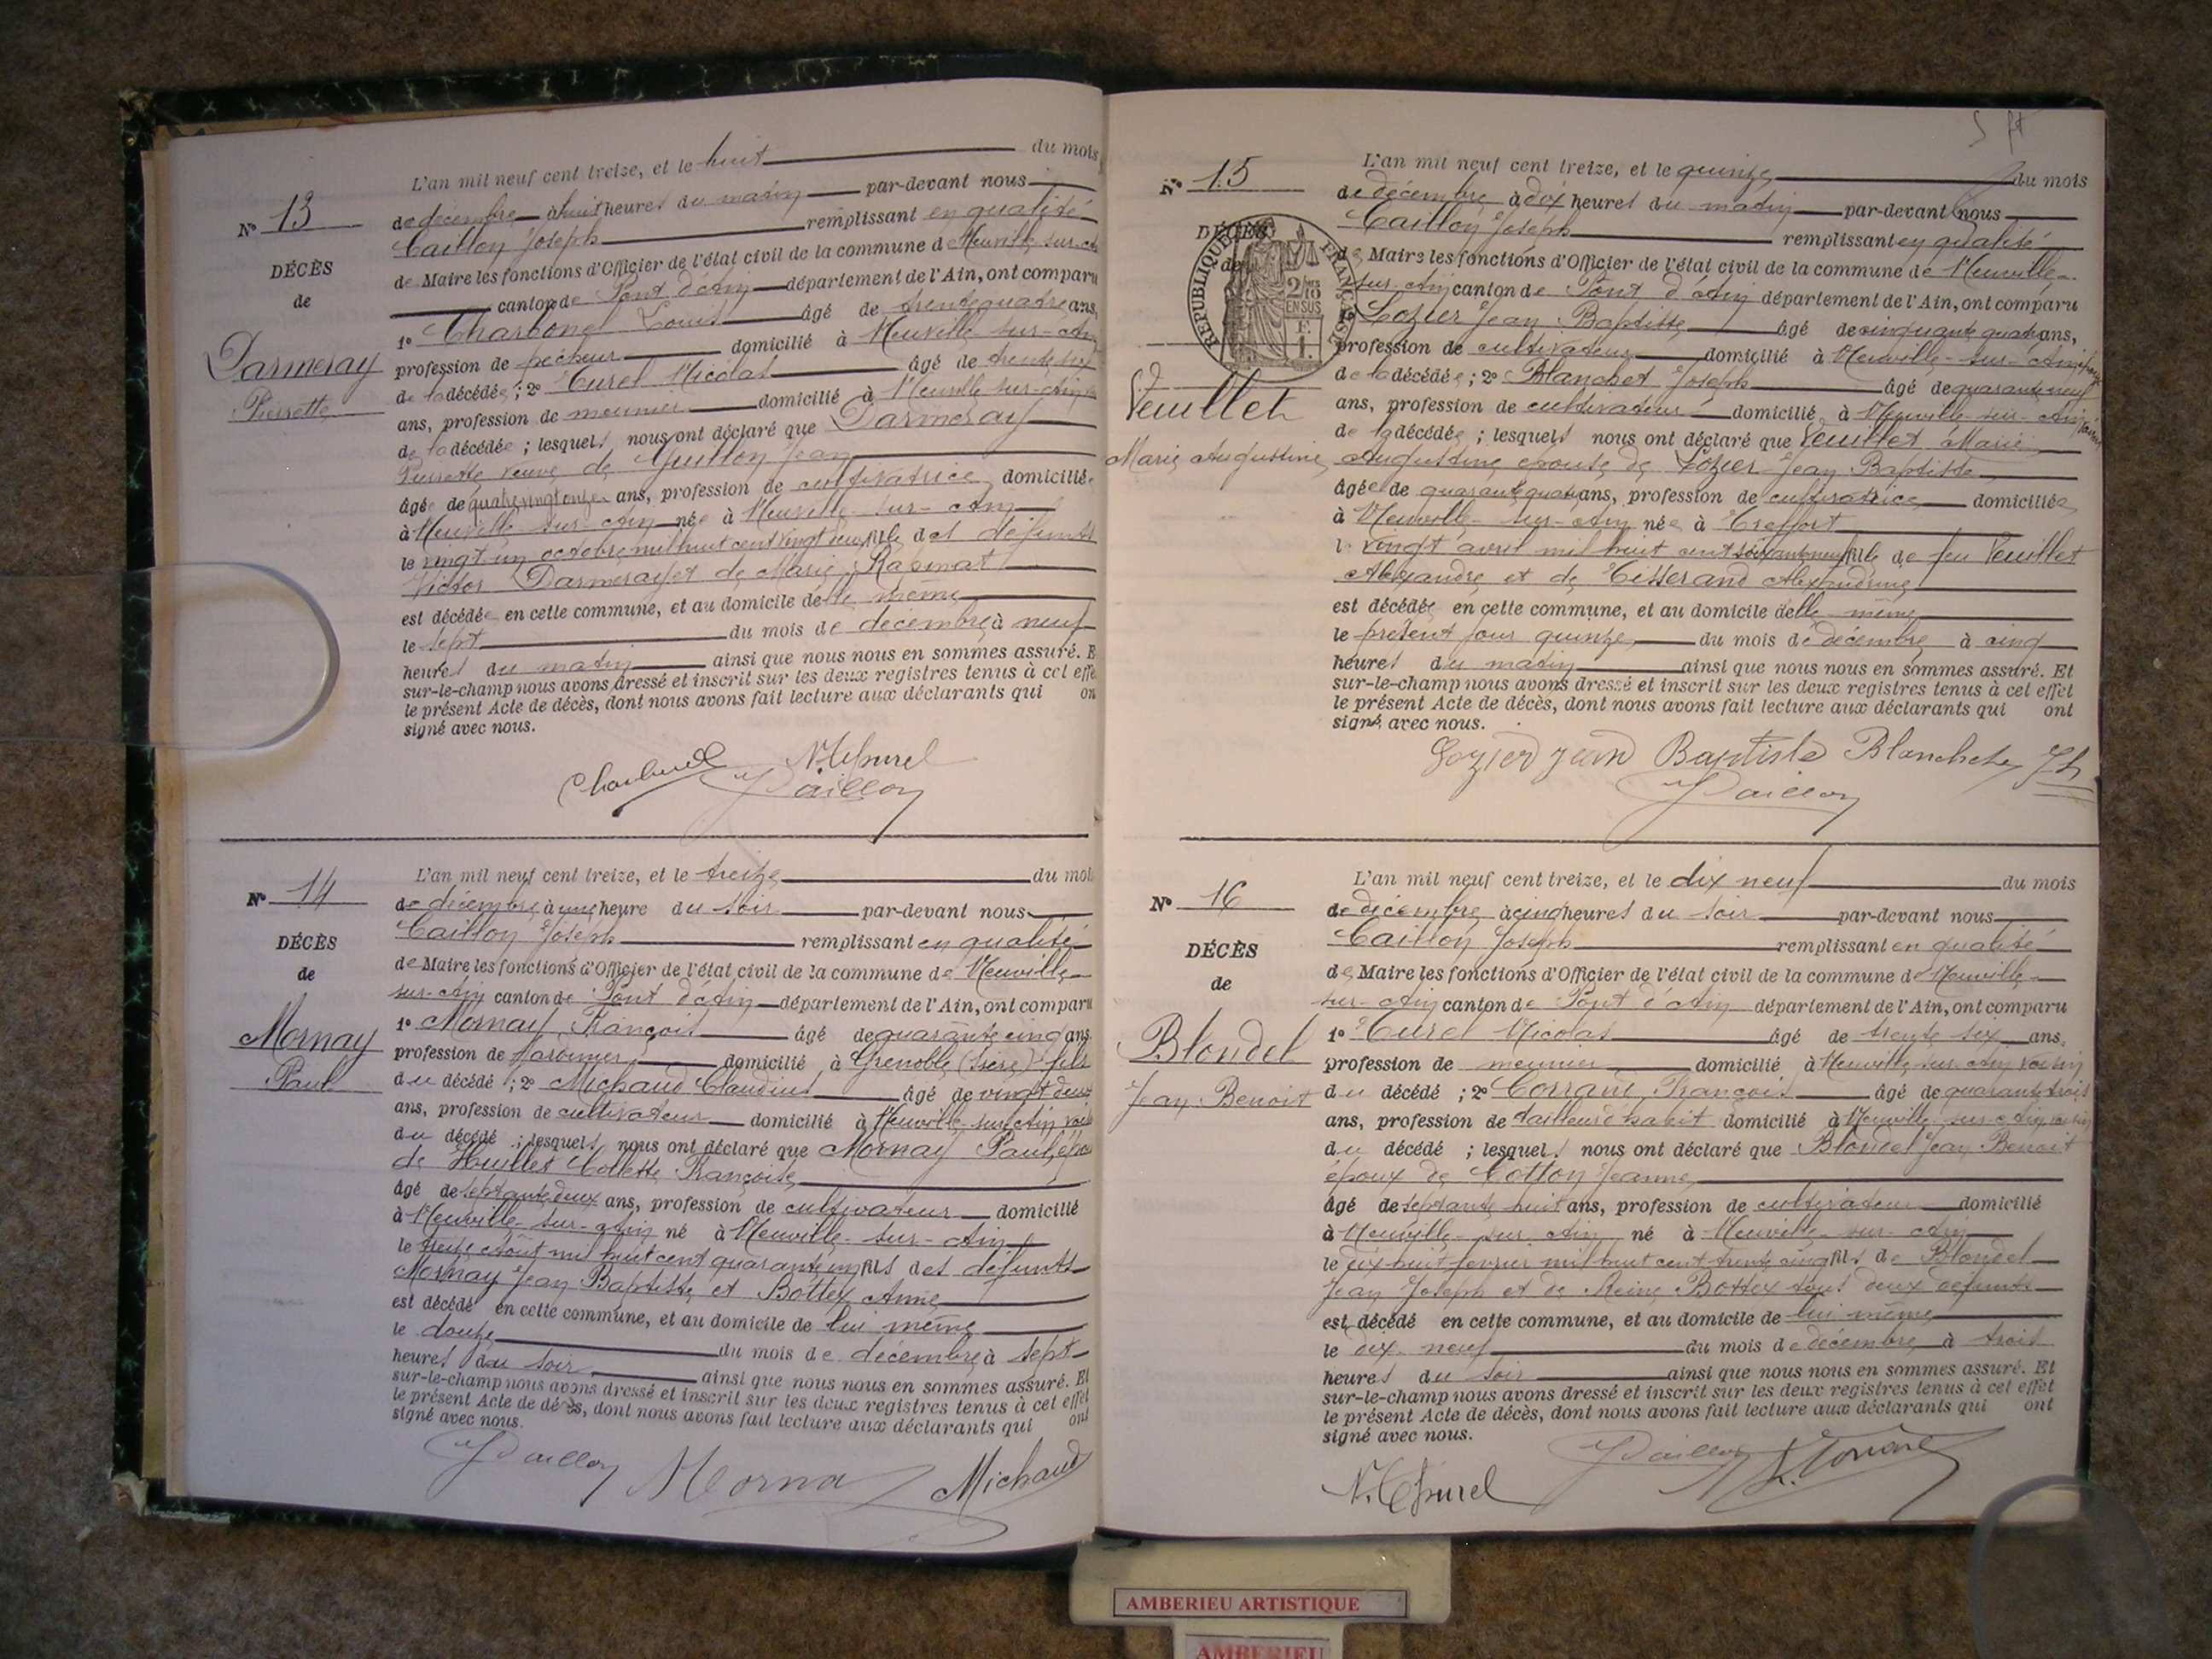 N° 13
DÉCÈS
de
Darmeray
Pierrette
L'an mil neuf cent treize, et le huit du mois
de décembre à huit heures du matin par-devant nous
Caillon Joseph remplissant en qualité
de Maire les fonctions d'Officier de l'état civil de la commune de Neuville-sur-Ain
canton de Pont d'Ain département de l'Ain, ont comparu
1° Charbonel Louis âgé de trente quatre ans,
profession de pêcheur domicilié à Neuville-sur-Ain
de la décédée ; 2° Curel Nicolas âgé de trente six
ans, profession de meunier domicilié à Neuville-sur-Ain
de la décédée ; lesquels nous ont déclaré que Darmeray
Pierrette veuve de Guillon Jean
âgée de quatre vingt onze ans, profession de cultivatrice domiciliée
à Neuville-sur-Ain née à Neuville-sur-Ain
le vingt un octobre mil huit cent vingt deux fille des défunts
Victor Darmeray et de Marie Rapinat
est décédée en cette commune, et au domicile de elle même
le sept du mois de décembre à neuf
heures du matin ainsi que nous nous en sommes assuré. E
sur-le-champ nous avons dressé et inscrit sur les deux registres tenus à cet effe
le présent Acte de décès, dont nous avons fait lecture aux déclarants qui on
signé avec nous.
Charbonel N. Curel
J Caillon
N° 14
DÉCÈS
de
Mornay
Paul
L'an mil neuf cent treize, et le treize du moi
de décembre à une heure du soir par-devant nous
Caillon Joseph remplissant en qualité
de Maire les fonctions d'Officier de l'état civil de la commune de Neuville-
sur-Ain canton de Pont d'Ain département de l'Ain, ont comparu
1° Mornay François âgé de quarante cinq ans
profession de domicilié à Grenoble (Isère) fils
du décédé ; 2° Michaud Claudius âgé de vingt deux
ans, profession de cultivateur domicilié à Neuville-sur-Ain voisin
du décédé ; lesquels nous ont déclaré que Mornay Paul, époux
de Huillet Collette Françoise
âgé de septante deux ans, profession de cultivateur domicilié
à Neuville-sur-Ain né à Neuville-sur-Ain
le treize août mil huit cent quarante un fils des défunts
Mornay Jean Baptiste et Bottex Anne
est décédé en cette commune, et au domicile de lui même
le douze du mois de décembre à sept
heures du soir ainsi que nous nous en sommes assuré. Et
sur-le-champ nous avons dressé et inscrit sur les deux registres tenus à cet effet
le présent Acte de décès, dont nous avons fait lecture aux déclarants qui ont
signé avec nous.
J Caillon Morna Michaud
N° 15
DÉCÈS
de
RÉPUBLIQUE FRANÇAISE
2/10
EN SUS
Veuillet
Marie Augustine
L'an mil neuf cent treize, et le quinze du mois
de décembre à dix heures du matin par-devant nous
Caillon Joseph remplissant en qualité
de Maire les fonctions d'Officier de l'état civil de la commune de Neuville-
sur-Ain canton de Pont d'Ain département de l'Ain, ont comparu
1° Lozier Jean Baptiste âgé de cinquante quatre ans,
profession de cultivateur domicilié à Neuville-sur-Ain époux
de la décédée ; 2° Blanchet Joseph âgé de quarante neuf
ans, profession de cultivateur domicilié à Neuville-sur-Ain voisin
de la décédée ; lesquels nous ont déclaré que Veuillet Marie
Augustine épouse de Lozier Jean Baptiste
âgée de quarante quatre ans, profession de cultivatrice domiciliée
à Neuville-sur-Ain née à Treffort
le vingt avril mil huit cent soixante neuf fille de feu Veuillet
Alexandre et de Tisserand Alexandrine
est décédée en cette commune, et au domicile delle même
le présent jour quinze du mois de décembre à cinq
heures du matin ainsi que nous nous en sommes assuré. Et
sur-le-champ nous avons dressé et inscrit sur les deux registres tenus à cet effet
le présent Acte de décès, dont nous avons fait lecture aux déclarants qui ont
signé avec nous.
Lozier Jean Baptiste Blanchet Jh
J Caillon
N° 16
DÉCÈS
de
Blondel
Jean Benoit
L'an mil neuf cent treize, et le dix neuf du mois
de décembre à cinq heures du soir par-devant nous
Caillon Joseph remplissant en qualité
de Maire les fonctions d'Officier de l'état civil de la commune de Neuville-
sur-Ain canton de Pont d'Ain département de l'Ain, ont comparu
1° Curel Nicolas âgé de trente six ans,
profession de meunier domicilié à Neuville-sur-Ain voisin
du décédé ; 2° François âgé de quarante trois
ans, profession de tailleur d'habit domicilié à Neuville-sur-Ain voisin
du décédé ; lesquels nous ont déclaré que Blondel Jean Benoit
époux de Cotton Jeanne
âgé de septante huit ans, profession de cultivateur domicilié
à Neuville-sur-Ain né à Neuville-sur-Ain
le dix huit février mil huit cent trente cinq fils de Blondel
Jean Joseph et de Reine Bottex tous deux défunts
est décédé en cette commune, et au domicile de lui même
le dix-neuf du mois de décembre à trois
heures du soir ainsi que nous nous en sommes assuré. Et
sur-le-champ nous avons dressé et inscrit sur les deux registres tenus à cet effet
le présent Acte de décès, dont nous avons fait lecture aux déclarants qui ont
signé avec nous.
J Caillon
N. Curel
AMBERIEU ARTISTIQUE
AMBERIEU